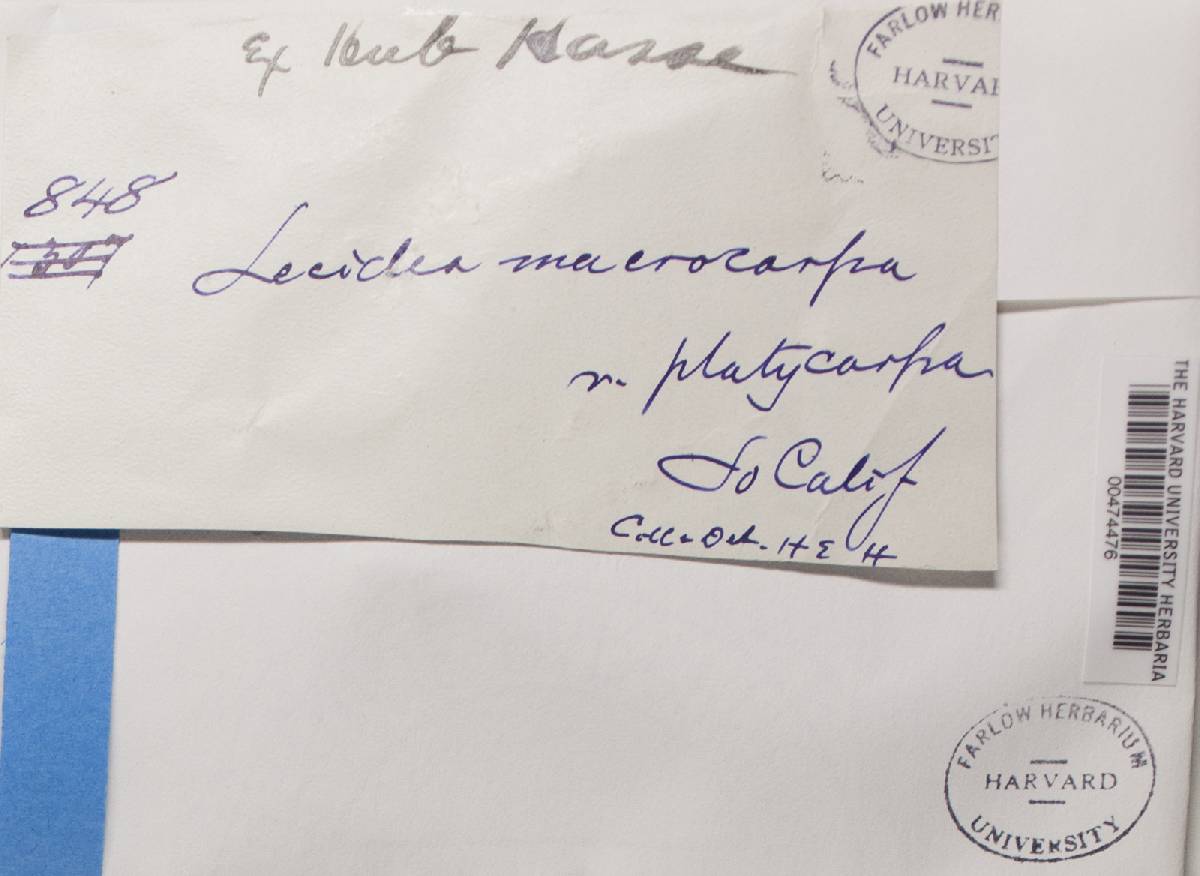 Ex Herb Hasse
FARLOW HER
HARVAR
UNIVERSIT
848
Lecidea macrocarpa
v. platycarpa
So Calif
Coll. Det. H E H
THE HARVARD UNIVERSITY HERBARIA
00474476
FARLOW HERBARIUM
HARVARD
UNIVERSITY